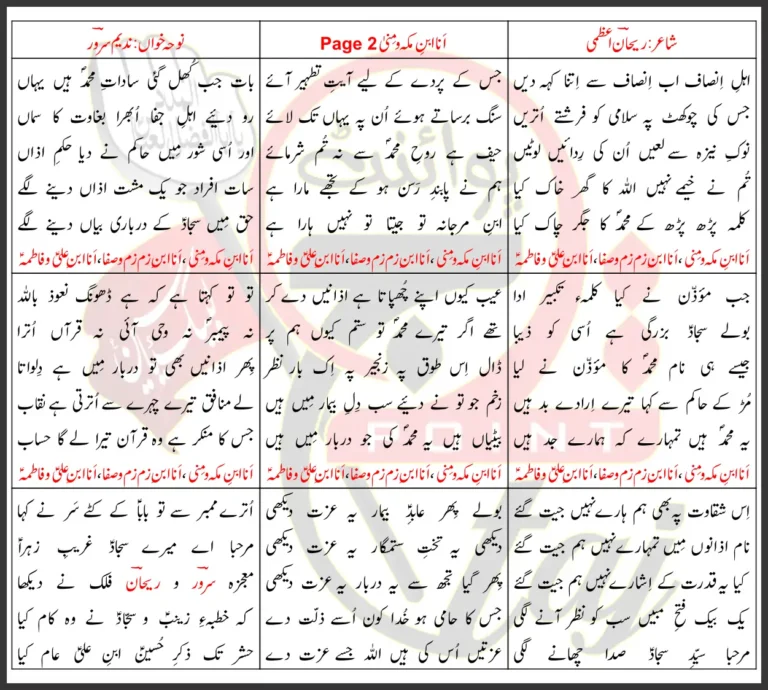 شاعر: ریحان اعظمی
اَنا ابنِ مکہ و منیٰ Page 2
نوحہ خواں: ندیم سرور
اہلِ اِنصاف اب اِنصاف سے اِتنا کہہ دیں
جس کی چوکھٹ پہ سلامی کو فرشتے اُتریں
نوکِ نیزہ سے لعیں اُن کی رِدائیں لوٹیں
تُم نے خیمے نہیں اللہ کا گھر خاک کیا
کلمہ پڑھ پڑھ کے محمدؐ کا جگر چاک کیا
اَنا ابنِ مکہ و منیٰ، اَنا ابن زم زم و صفا، اَنا ابن علیؑ و فاطمہؑ
جس کے پردے کے لیے آیتِ تطہیر آئے
سنگ برساتے ہوئے اُن پہ یہاں تک لائے
حیف ہے روحِ محمدؐ سے نہ تُم شرمائے
ہم نے پابندِ رسن ہو کے تجھے مارا ہے
ابنِ مرجانہ تو جیتا تو نہیں ہارا ہے
اَنا ابنِ مکہ و منیٰ، اَنا ابن زم زم و صفا، اَنا ابن علیؑ و فاطمہؑ
بات جب کُھل گئی ساداتِ محمدؐ ہیں یہاں
رو دئیے اہلِ جفا اُبھرا بغاوت کا سماں
اور اُسی شور میں حاکم نے دیا حکمِ اذاں
سات افراد جو یک مشت اذاں دینے لگے
حق میں سجادؑ کے درباری بیاں دینے لگے
اَنا ابنِ مکہ و منیٰ، اَنا ابن زم زم و صفا، اَنا ابن علیؑ و فاطمہؑ
جب مؤذّن نے کیا کلمہء تکبیر ادا
بولے سجادؑ بزرگی ہے اُسی کو ذیبا
جیسے ہی نام محمدؐ کا مؤذّن نے لیا
مُڑ کے حاکم سے کہا تیرے اِرادے بد ہیں
یہ محمدؐ ہیں تمہارے کہ ہمارے جد ہیں
اَنا ابنِ مکہ و منیٰ، اَنا ابن زم زم و صفا، اَنا ابن علیؑ و فاطمہؑ
عیب کیوں اپنے چُھپاتا ہے اذانیں دے کر
تھے اگر تیرے محمدؐ تو ستم کیوں ہم پر
ڈال اِس طوق پہ زنجیر پہ اِک بار نظر
زخم جو تو نے دئیے سب دلِ بیمار میں ہیں
بیٹیاں ہیں یہ محمدؐ کی جو دربار میں ہیں
اَنا ابنِ مکہ و منیٰ، اَنا ابن زم زم و صفا، اَنا ابن علیؑ و فاطمہؑ
تو تو کہتا ہے کہ ہے ڈھونگ نعوذ باللہ
نہ پیمبرؐ نہ وحی آئی نہ قرآں اُترا
پھر اذانیں بھی تو دربار میں ہے دِلواتا
لے منافق تیرے چہرے سے اُترتی ہے نقاب
جس کا منکر ہے وہ قرآن تیرا لے گا حساب
اَنا ابنِ مکہ و منیٰ، اَنا ابن زم زم و صفا، اَنا ابن علیؑ و فاطمہؑ
اِس شقاوت پہ بھی ہم ہارے نہیں جیت گئے
نام اذانوں میں تمہارے نہیں ہم جیت گئے
کیا یہ قدرت کے اِشارے نہیں ہم جیت گئے
یک بیک فتحِ مبیں سب کو نظر آنے لگی
مرحبا سیّدِ سجادؑ صدا چھانے لگی
بولے پھر عابدِؑ بیمار یہ عزت دیکھی
دیکھی یہ تختِ ستمگار یہ عزت دیکھی
پھر گیا تجھ سے یہ دربار یہ عزت دیکھی
جس کا حامی ہو خُدا کون اُسے ذلّت دے
عزتیں اُس کی ہیں اللہ جسے عزت دے
اُترے ممبر سے تو باباؑ کے کٹے سَر نے کہا
مرحبا اے میرے سجادؑ غریبِ زہراؑ
معجزہ سرور و ریحان فلک نے دیکھا
کہ خطبہءِ زینبؑ و سجّادؑ نے وہ کام کیا
حشر تک ذکرِ حُسینؑ ابنِ علیؑ عام کیا